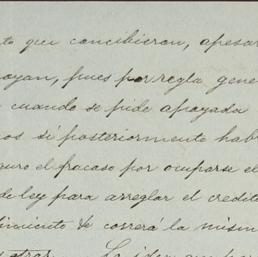 to que concibieron, apesar
oyan, pues por regla gene
cuando se pide apoyada
os si posteriormente hab
guro el fracaso por ocuparse el
de ley para arreglar el credito
dimiento se correrá la mism
otras. La idea